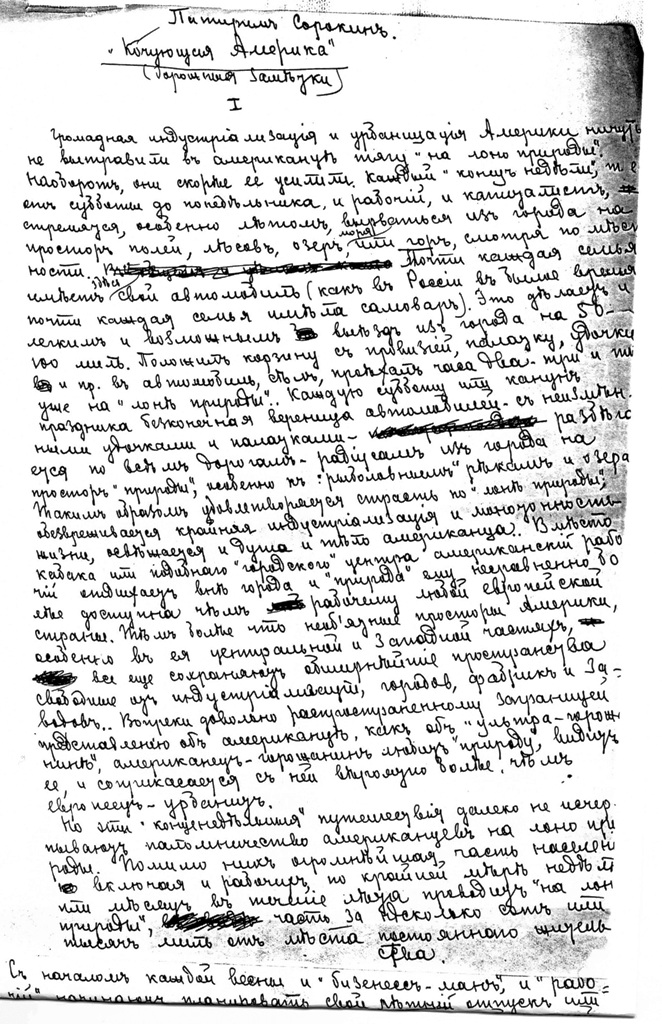 Питиримъ Сорокинъ.
"Кочующая Америка"
(Дорожныя Замѣтки)
I
Громадная индустріализація и урбанизація Америки ничуть
не вытравили въ американцѣ тягу "на лоно природы".
Наоборотъ, они скорѣе ее усилили. Каждый "конецъ недѣли", т.е.
отъ субботы до понедѣльника, и рабочій, и капиталистъ,
стремятся, особенно лѣтомъ, вырваться изъ города на
просторъ полей, лѣсовъ, озеръ, моря или горъ, смотря по мѣст
ности. Почти каждая семья
здѣсь имѣетъ свой автомобиль (какъ въ Россіи въ былое время
почти каждая семья имѣла самоваръ). Это дѣлаетъ и
легкимъ и возможнымъ выѣздъ изъ города на 50-
100 миль. Положить корзину съ провизіей, палатку, удочки
и пр. въ автомобиль, сѣлъ, проѣхалъ часа два-три и ты
уже на "лонѣ природы".. Каждую субботу или канунъ
праздника безконечная вереница автомобилей съ неизмѣн
ными удочками и палатками - разбѣга
ется по всѣмъ дорогамъ-радіусамъ изъ города на
просторъ "природы", особенно къ "рыболовнымъ" рѣкамъ и озера
Такимъ образомъ удовлетворяется страсть по "лонѣ природы",
обезвреживается крайняя индустріализація и монотонность
жизни, освѣжается и душа и тѣло американца.. Вмѣсто
кабака или подобнаго "городского" центра американскій рабо
чій отдыхаетъ внѣ города и "природа" ему несравненно бо
лѣе доступна чѣмъ рабочему любой европейской
страны. Тѣмъ болѣе что необ'ятные просторы Америки,
особенно въ ея центральной и Западной частяхъ,
все еще сохраняютъ обширнѣйшіе пространства
свободные отъ индустріализаціи, городовъ, фабрикъ и за-
водовъ.. Вопреки довольно распространенному заграницей
представленію объ американцѣ, какъ объ "ультра-горожа
нинѣ", американецъ-горожанинъ любитъ "природу", видитъ
ее, и соприкасается съ ней вѣроятно болѣе, чѣмъ
европеецъ-урбанистъ.
Но эти "конценедѣльныя" путешествія далеко не исчер
пываютъ паломничество американцевъ на лоно при
роды. Помимо нихъ огромнѣйшая часть населені
включая и рабочихъ, по крайней мѣрѣ недѣлю
или мѣсяцъ въ теченіе лѣта проводитъ "на лон
природы", часть за нѣсколько сотъ или
тысячъ миль отъ мѣста постояннаго житель
ства.
Съ началомъ каждой весны и "бизенесс-манъ", и "рабо-
чій" начинаютъ планировать свой лѣтній отпускъ или